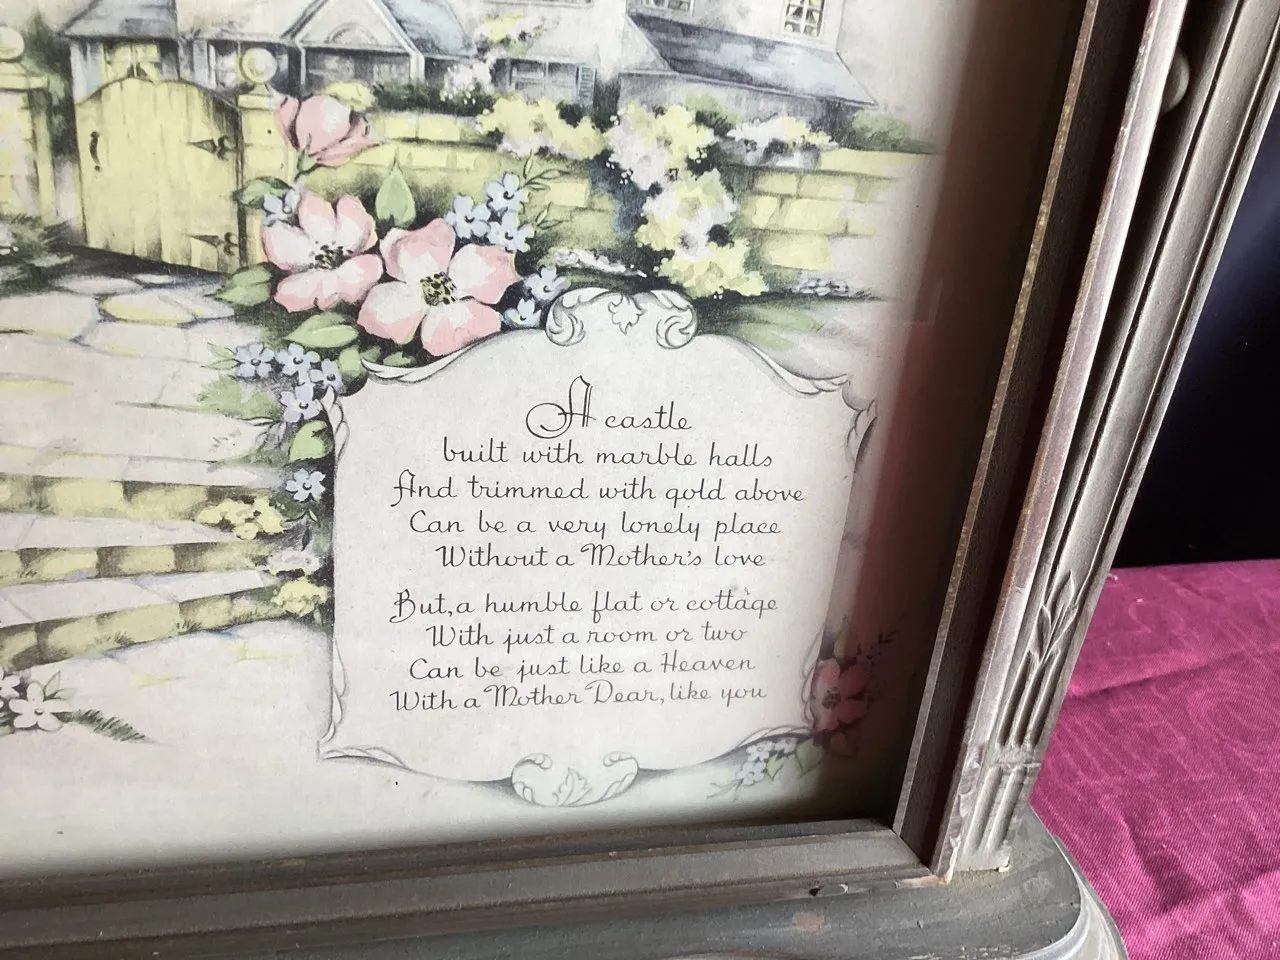 A castle
built with marble halls
And trimmed with gold above
Can be a very lonely place
Without a Mother's love
But, a humble flat or cottage
With just a room or two
Can be just like a Heaven
With a Mother Dear, like you